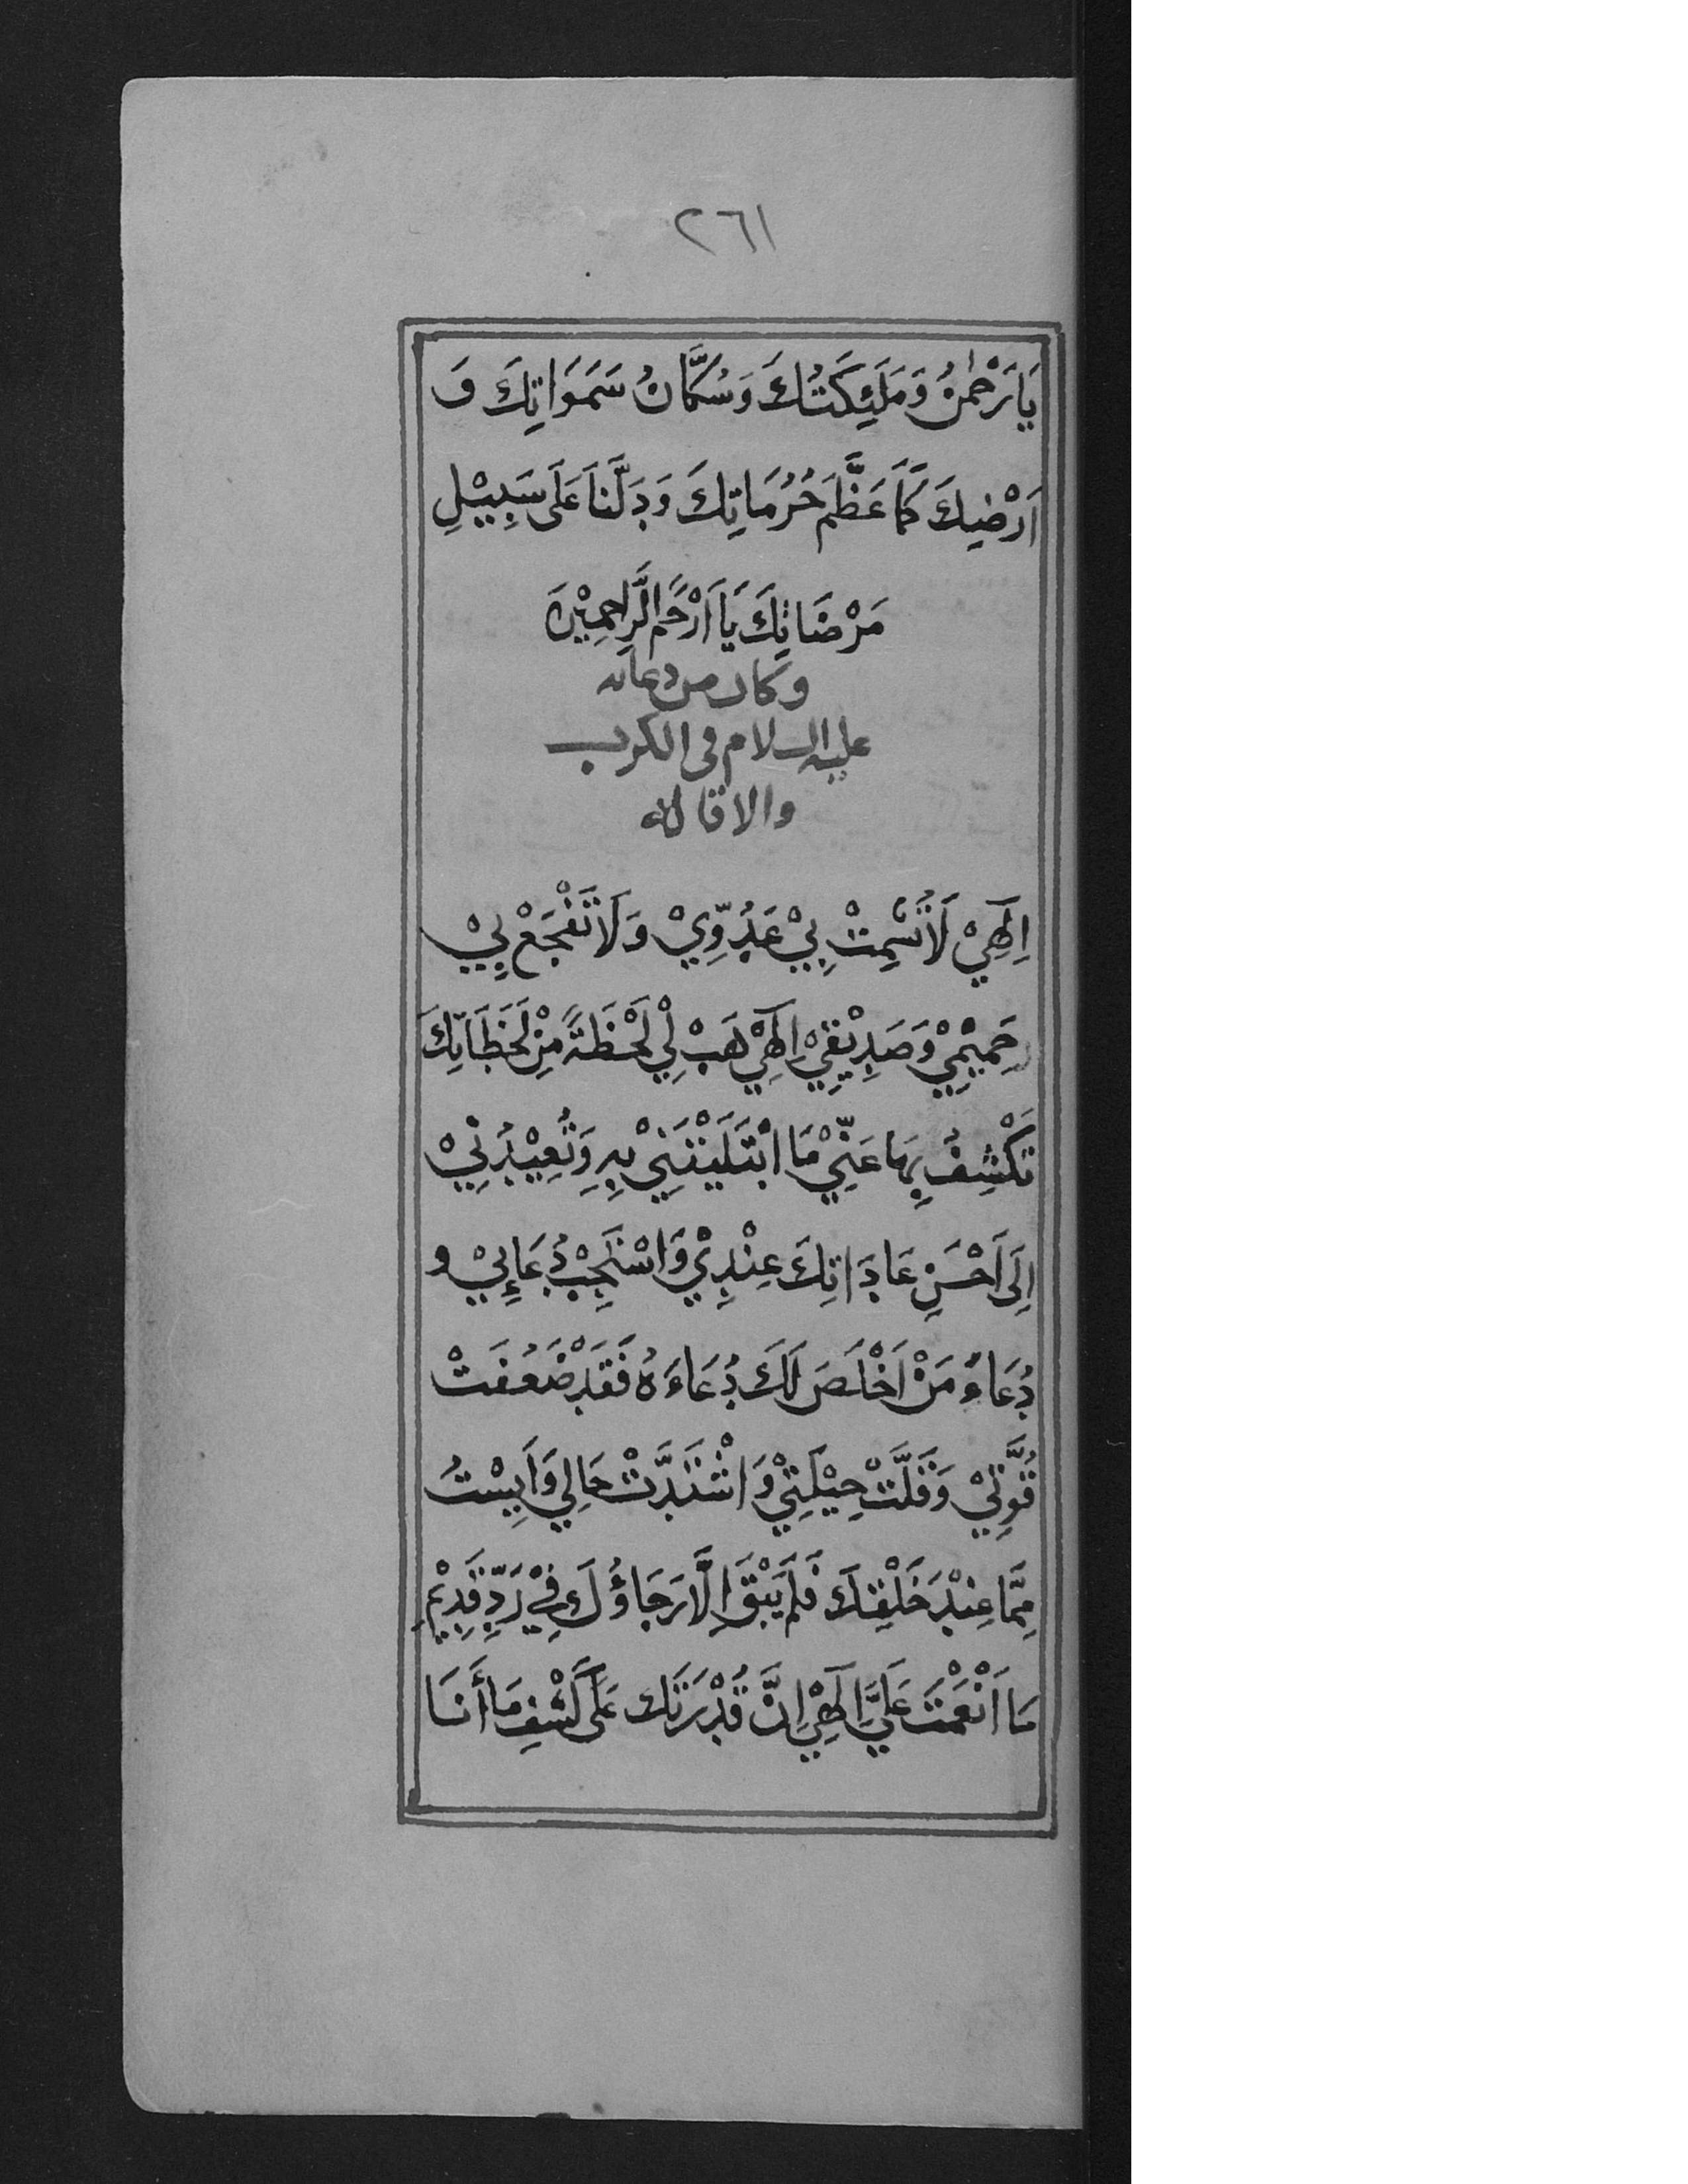 ٢٦١
يَا رَحْمٰنُ وَمَلَئِكَتُكَ وَسُكَّانُ سَمَوَاتِكَ وَ
اَرْضِيكَ كَمَا عَظَّمَ حُرُمَاتِكَ وَدَلَّنَا عَلَى سَبِيْلِ
مَرْضَاتِكَ يَا اَرْحَمَ الرَّاحِمِيْنَ
وكان من دعائه
عليه السلام فى الكرب
والاقالة
اِلَهِيْ لَا تُشْمِتْ بِيْ عَدُوِّيْ وَلَا تَفْجَعْ بِيْ
حَمِيْمِيْ وَصَدِيْقِيْ اِلَهِيْ هَبْ لِيْ لَحْظَةً مِنْ لَحَظَاتِكَ
تَكْشِفُ بِهَا عَنِّيْ مَا ابْتَلَيْتَنِيْ بِهِ وَتُعِيْدُنِيْ
اِلَى اَحْسَنِ عَادَاتِكَ عِنْدِيْ وَاسْتَجِبْ دُعَائِيْ و
دُعَاءَ مَنْ اَخْلَصَ لَكَ دُعَاءَهُ فَقَدْ ضَعُفَتْ
قُوَّتِيْ وَقَلَّتْ حِيْلَتِيْ وَاشْتَدَّتْ حَالِي وَاَيِسْتُ
مِمَّا عِنْدَ خَلْقِكَ فَلَمْ يَبْقَ اِلَّا رَجَاؤُكَ فِيْ رَدِّ قَدِيْمِ
مَا اَنْعَمْتَ عَلَيَّ اِلَهِيْ اِنَّ قُدْرَتَكَ عَلَى كَشْفِ مَا أَنَا